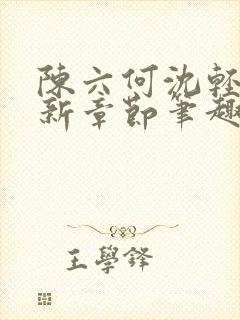 陳六何沈輕
新章節筆趣
王學鋒